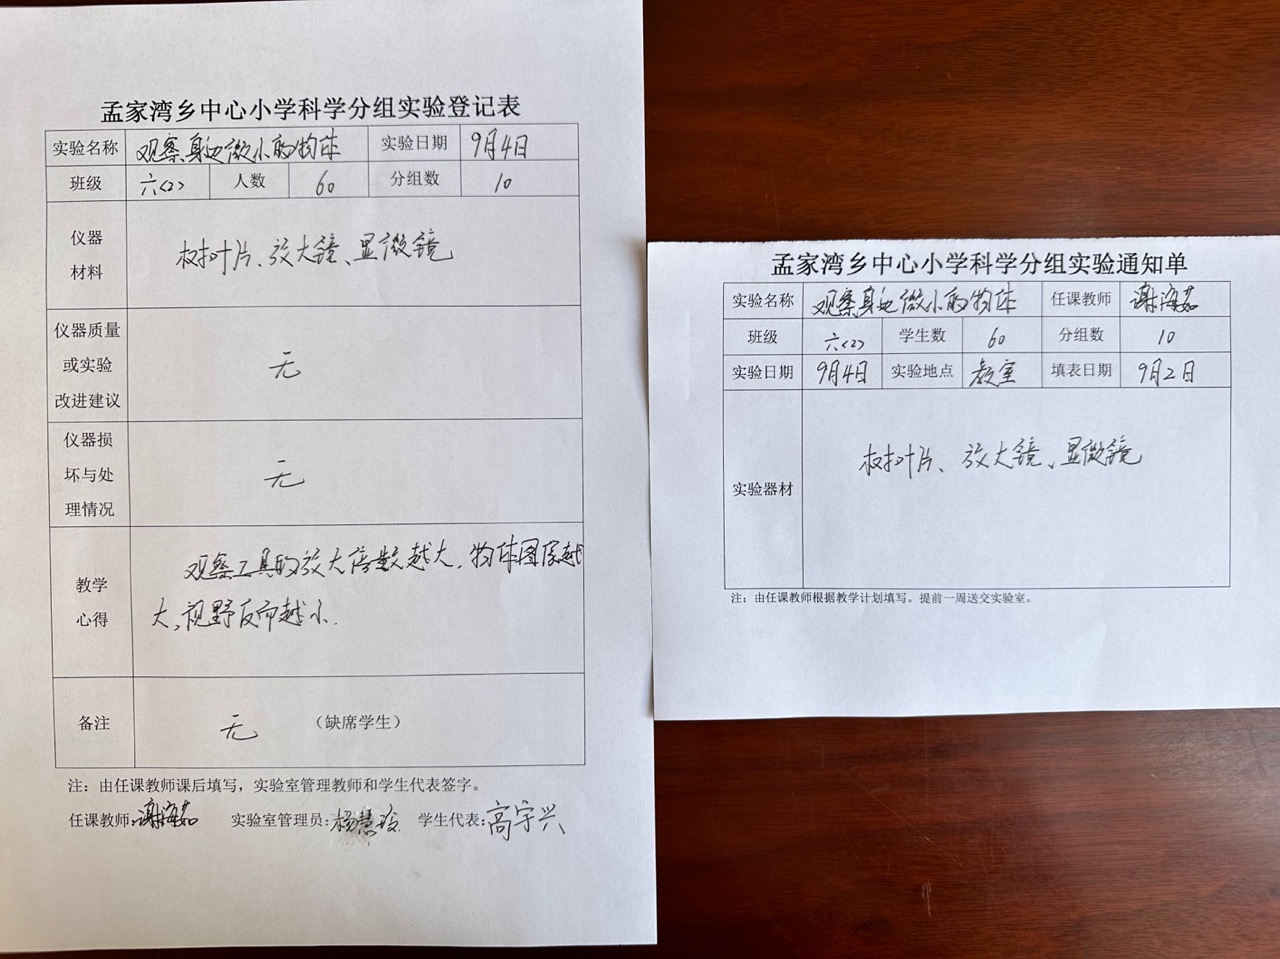 孟家湾乡中心小学科学分组实验登记表
实验名称 观察身边微小的物体 实验日期 9月4日
班级 六<2> 人数 60 分组数 10
仪器
材料
树叶片、放大镜、显微镜
仪器质量
或实验
改进建议
无
仪器损
坏与处
理情况
无
教学
心得
观察工具的放大倍数越大,物体图像越
大,视野反而越小.
备注
无 （缺席学生）
注：由任课教师课后填写，实验室管理教师和学生代表签字。
任课教师:谢海茹 实验室管理员:杨慧玲 学生代表:高宇兴
孟家湾乡中心小学科学分组实验通知单
实验名称 观察身边微小的物体 任课教师 谢海茹
班级 六<2> 学生数 60 分组数 10
实验日期 9月4日 实验地点 教室 填表日期 9月2日
实验器材
树叶片、放大镜、显微镜
注：由任课教师根据教学计划填写。提前一周送交实验室。